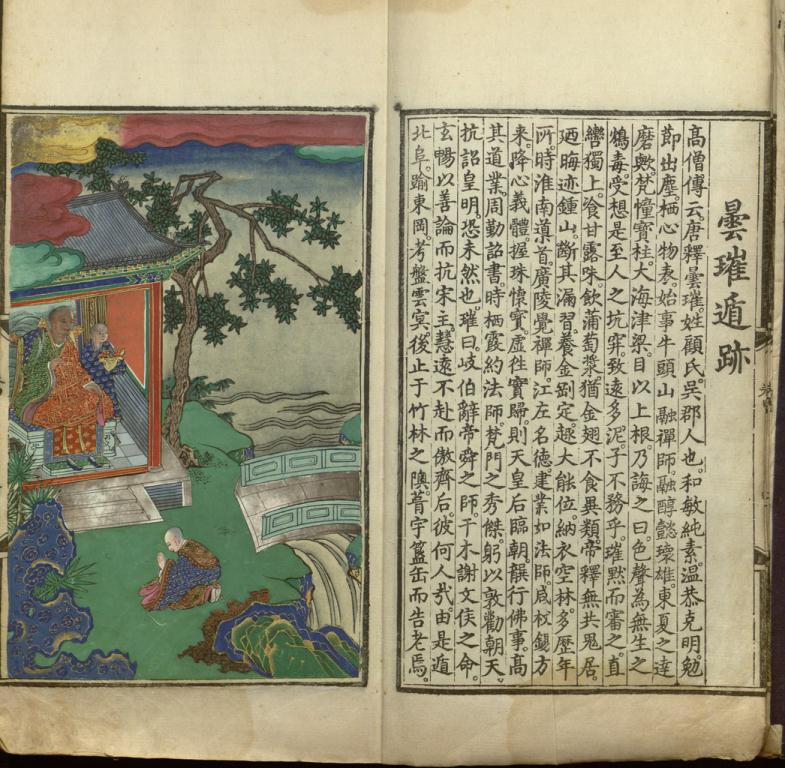 曇璀遁跡
高僧傳云。唐釋曇璀。姓顧氏。吳郡人也。和敏純素。溫恭克明。勉
節出塵。栖心物表。始事牛頭山融禪師。融醇懿瓌雄。東夏之達
磨歟。梵幢寶柱。大海津梁。目以上根。乃誨之曰。色聲為無生之
鴆毒。受想是至人之坑穽。致遠多泥。子不務乎。璀默而審之。直
轡獨上。飡甘露味。飲蒲萄漿。猶金翅不食異類。帝釋無共鬼居。
廼晦迹鍾山。斷其漏習。養金剛定。趣大能位。納衣空林。多歷年
所。時淮南道首。廣陵覺禪師。江左名德。建業如法師。咸杖錫方
來。降心義體。握珠懷寶。虛往實歸。則天皇后臨朝。龔行佛事。高
其道業。周勤詔書。時栖霞約法師。梵門之秀傑。躬以敦勸朝天。
抗詔皇明。恐未然也。璀曰。岐伯辭帝舜之師。干木謝文侯之命。
玄暢以善論而抗宋主。慧遠不赴而傲齊后。彼何人哉。由是遁
北阜。踰東岡。考盤雲冥。後止于竹林之隩。葺宇簋缶而告老焉。